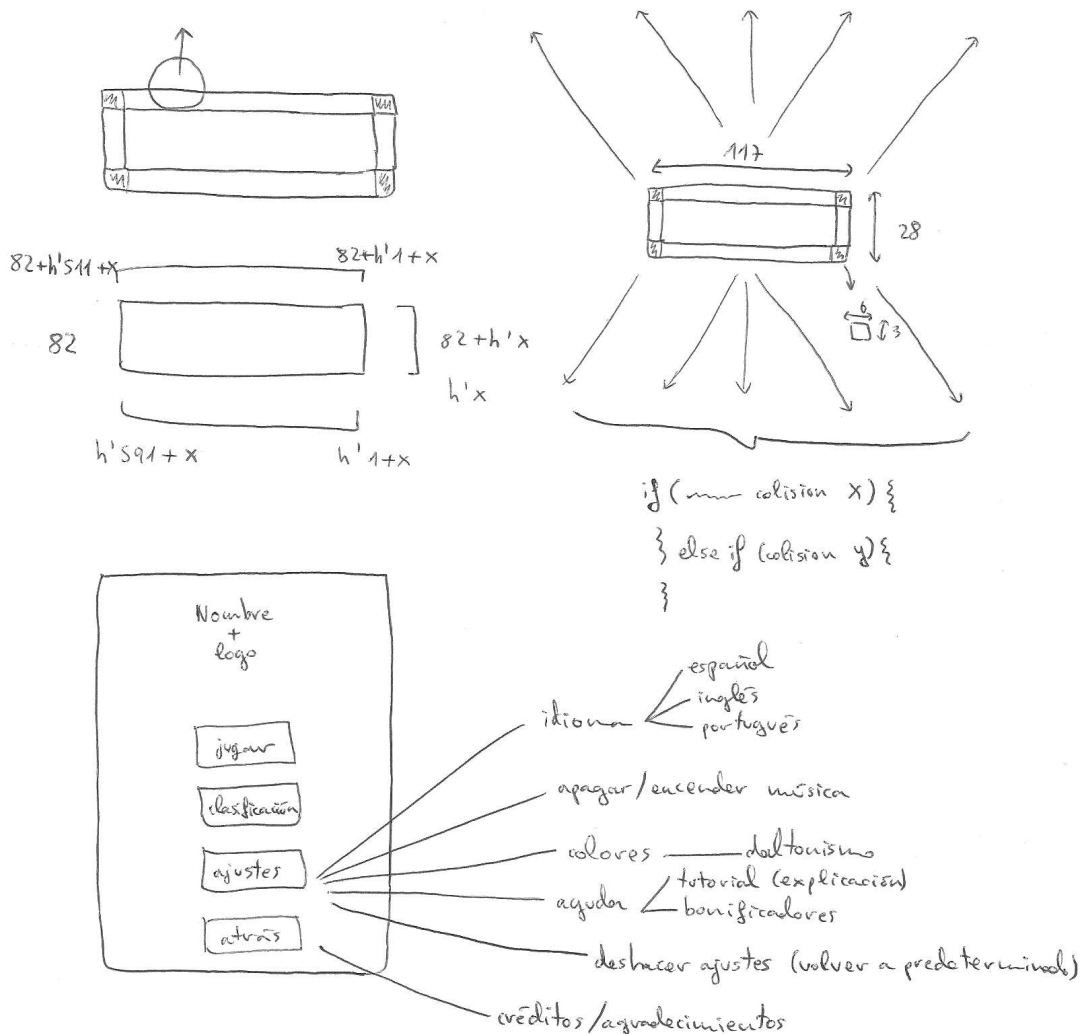 117
28
6
3
82+h'511+x
82+h'1+x
82
82+h'x
h'x
h'591+x
h'1+x
if ( colision x) {
} else if (colision y) {
}
Nombre
+
logo
jugar
clasificación
ajustes
atrás
idioma
español
inglés
português
apagar/encender música
colores
daltonismo
ayuda
tutorial (explicación)
bonificadores
deshacer ajustes (volver a predeterminado)
créditos/agradecimientos